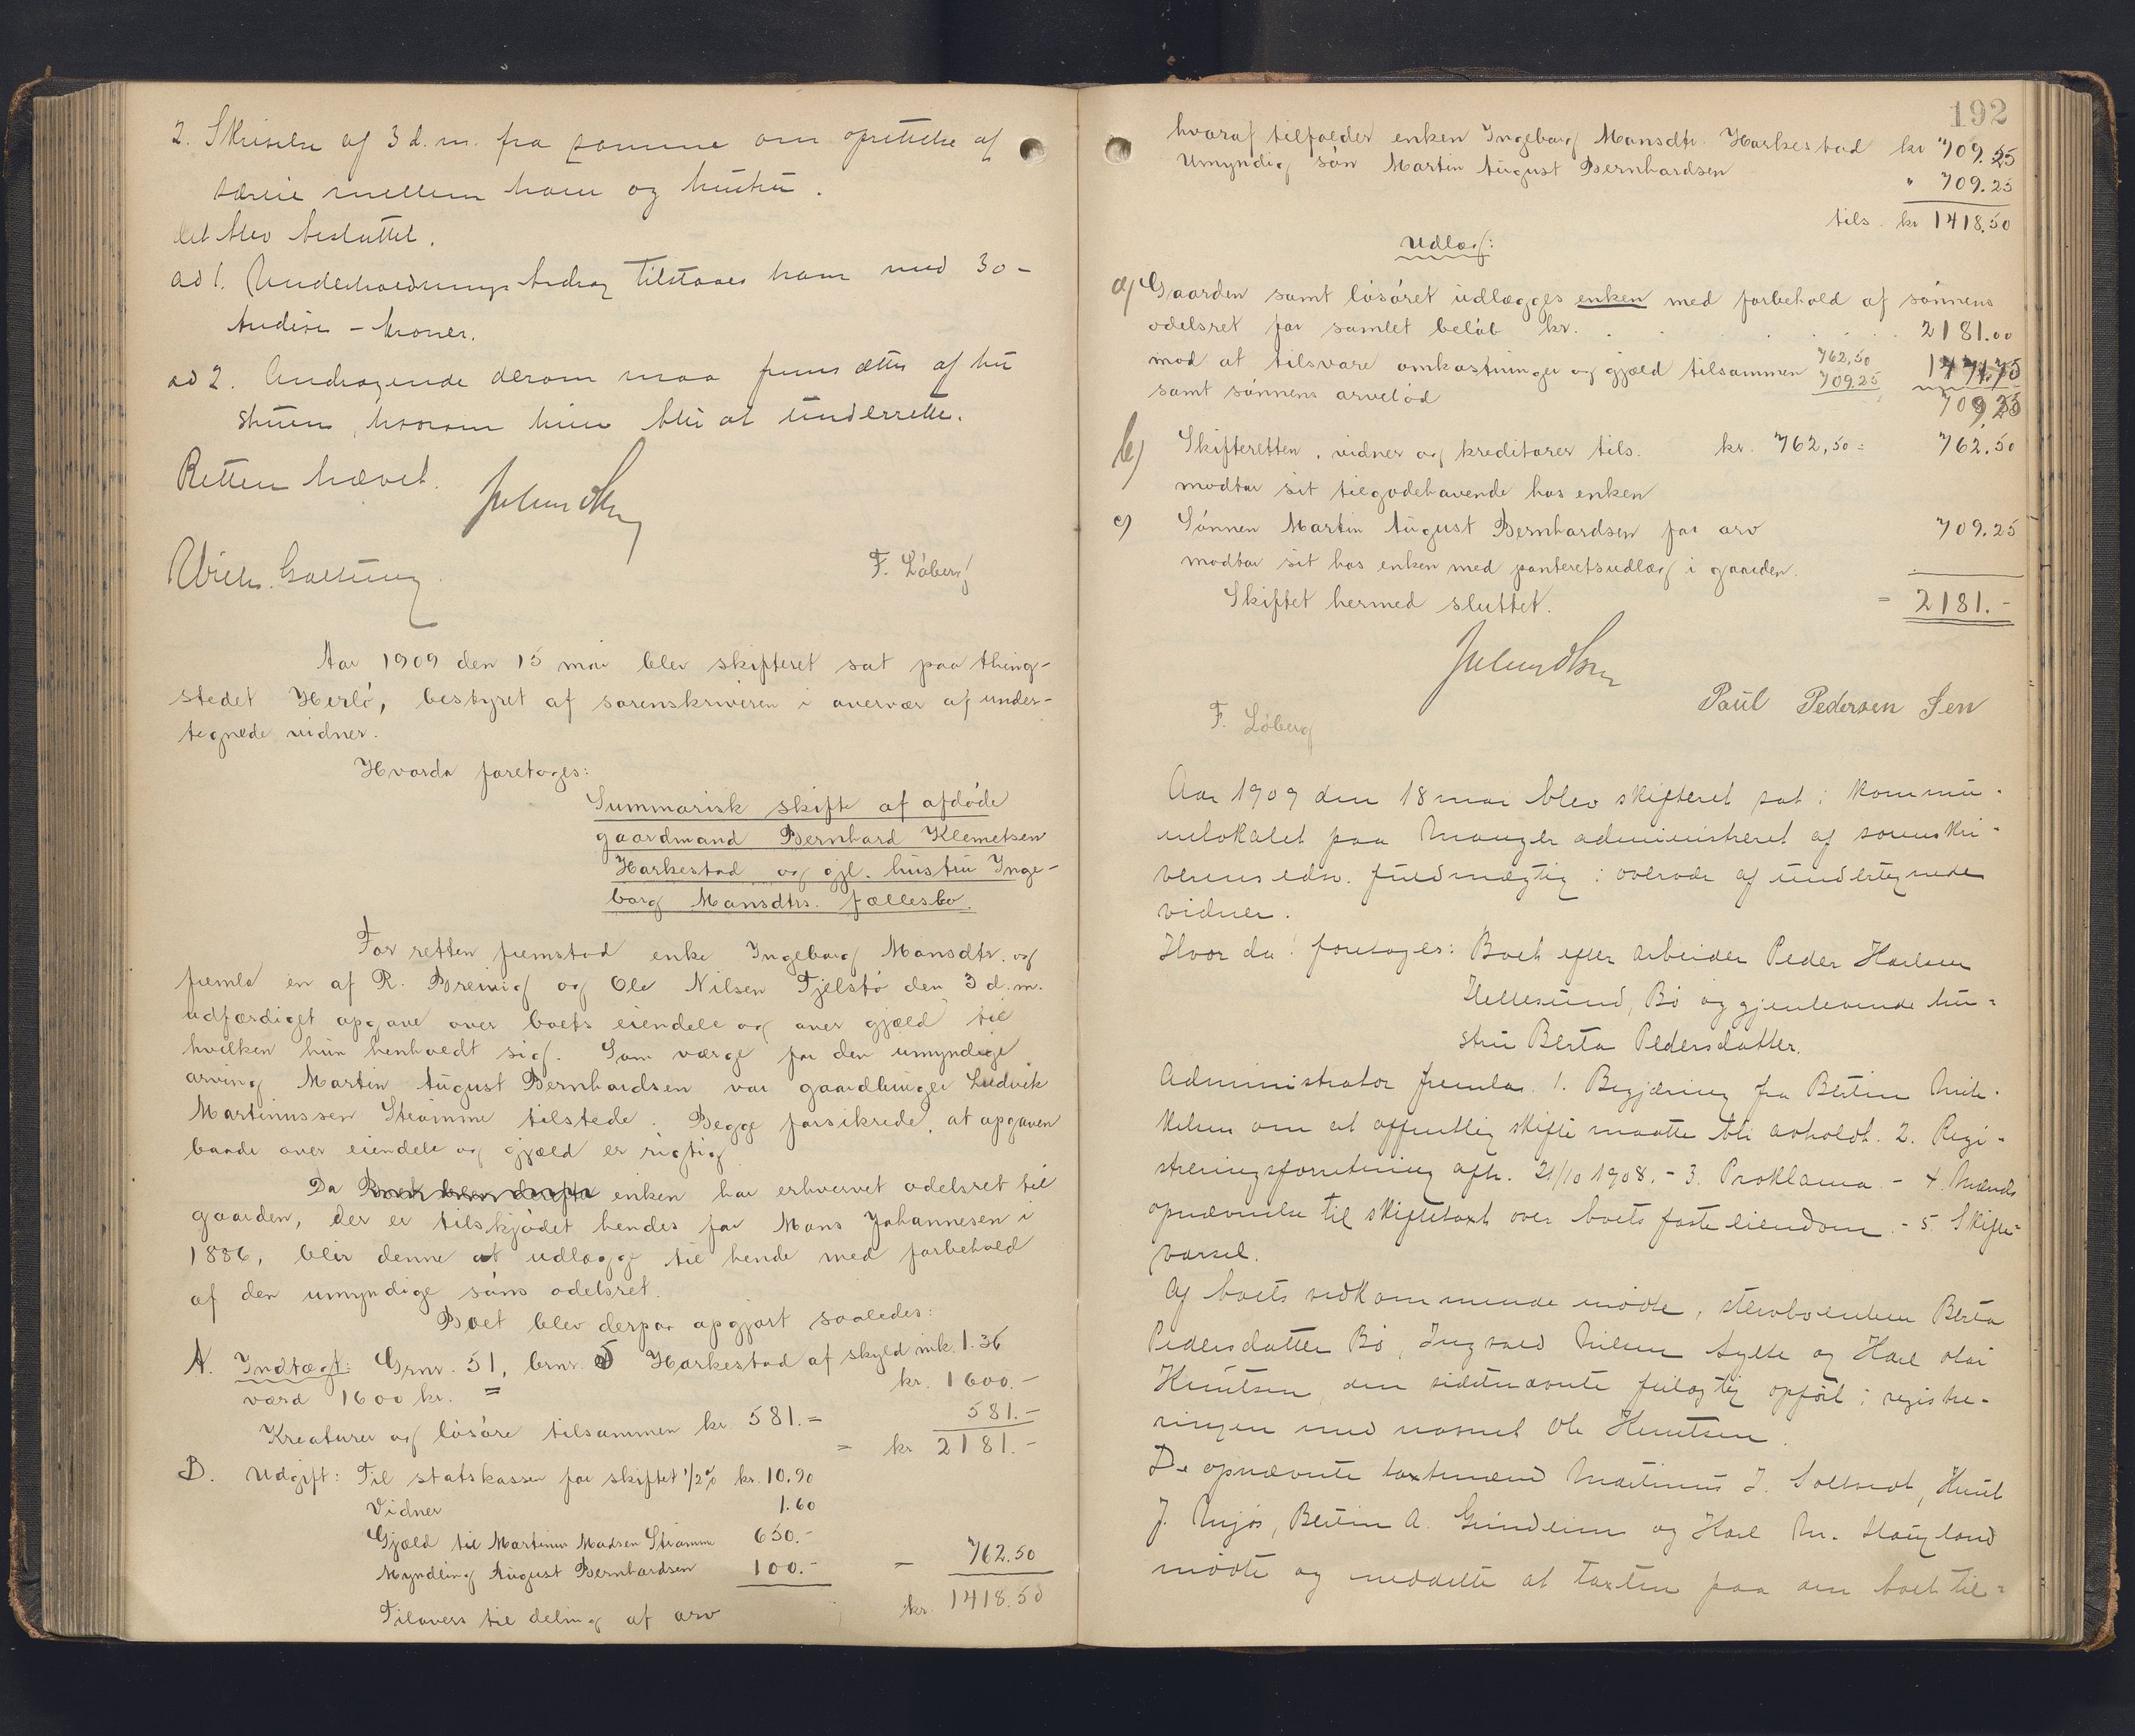 2. Skrivelse af 3 d. m. fra samme om oprettelse af
særeie mellem ham og hustru.
det blev besluttet.
ad 1. Underholdningsbidrag tilstaaes ham med 30 -
tredive - kroner.
ad 2. Andragende derom maa fremsættes af hu
struen, hvorom hun blir at underrette.
Retten hævet.
F. Løberg
Aar 1909 den 15 mai blev skifteret sat paa thing-
stedet Herlø, bestyret af sorenskriveren i overvær af under-
tegnede vidner.
Hvorda foretoges:
Summarisk skifte af afdøde
gaardmand Bernhard Klemetsen
Harkestad og gjl. hustru Inge-
borg Monsdtrs. fællesbo.
For retten fremstod enke Ingeborg Monsdtr. og
fremla en af R. Breivig og Ole Nilsen Fjelstø den 3 d. m.
udfærdiget opgave over boets eiendele og over gjæld til
hvilken hun henholdt sig. Som værge for den umyndige
arving Martin August Bernhardsen var gaardbruger Ludvik
Martinussen Strømme tilstede. Begge forsikrede, at opgaven
baade over eiendele og gjæld er rigtig
Da enken har erhvervet odelsret til
gaarden, der er tilskjødet hendes far Mons Johannesen i
1886, blir denne at udlægge til hende med forbehold
af den umyndige søns odelsret.
Boet blev derpaa opgjort saaledes:
A. Indtægt: Grnr. 51, brnr. 5 Harkestad af skyld mk. 1.36
værd 1600 kr. = kr. 1600.-
Kreaturer og løsøre tilsammen kr 581.= 581.-
= kr 2181.-
B. Udgift: Til statskassen for skiftet 1/2% kr. 10.90
Vidner 1.60
Gjæld til Martinus Madsen Strømme 650.-
Myndling August Bernhardsen 100.- - 762.50
Tilovers til deling af arv kr. 1418.50
192
hvoraf tilfalder enken Ingeborg Monsdtr. Harkestad kr 709.25
Umyndig søn Martin August Bernhardsen " 709.25
tils. kr 1418.50
Udlæg:
a) Gaarden samt løsøret udlægges enken med forbehold af sønnens
odelsret for samlet beløb kr. 2181.00
mod at tilsvare omkostninger og gjæld tilsammen 762,50 1471.75
samt sønnens arvelod 709.25 709,25
b) Skifteretten, vidner og kreditorer tils. kr. 762,50 = 762,50
modtar sit tilgodehavende hos enken
c) Sønnen Martin August Bernhardsen for arv 709.25
modtar sit hos enken med panteretsudlæg i gaarden.
Skiftet hermed sluttet. = 2181.-
Paul Pedersen Sen
F. Løberg
Aar 1909 den 18 mai blev skifteret sat i kommu-
nelokalet paa Manger administreret af sorenskri-
verens edsv. fuldmægtig i overvær af undertegnede
vidner.
Hvor da foretoges: Boet efter arbeider Peder Karlsen
Hellesund, Bø og gjenlevende hu-
stru Berta Pedersdatter.
Administrator fremla. 1. Begjæring fra Bertin Mik-
kelsen om at offentlig skifte maatte bli avholdt. 2. Regi-
streringsforretning afh. 21/10 1908. - 3. Proklama. - 4. Mænds
opnævnelse til skiftetakst over boets faste eiendom. - 5. Skifte-
varsel.
Af boets vedkommende mødte, sterboenken Berta
Pedersdatter Bø, Ingvald Nilsen Sylte og Karl Olai
Knutsen, den sidstnævnte feilagtig opført i registre-
ringen med navnet Ole Knutsen.
De opnævnte takstmænd Martinus J. Soltvedt, Knut
J. Mjøs, Bertin A. Grindeim og Karl M. Haugland
mødte og meddelte at taxten paa den boet til-